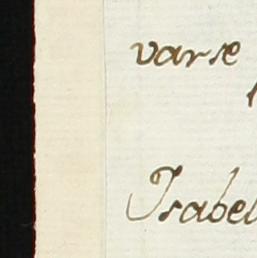 varse
Isabel